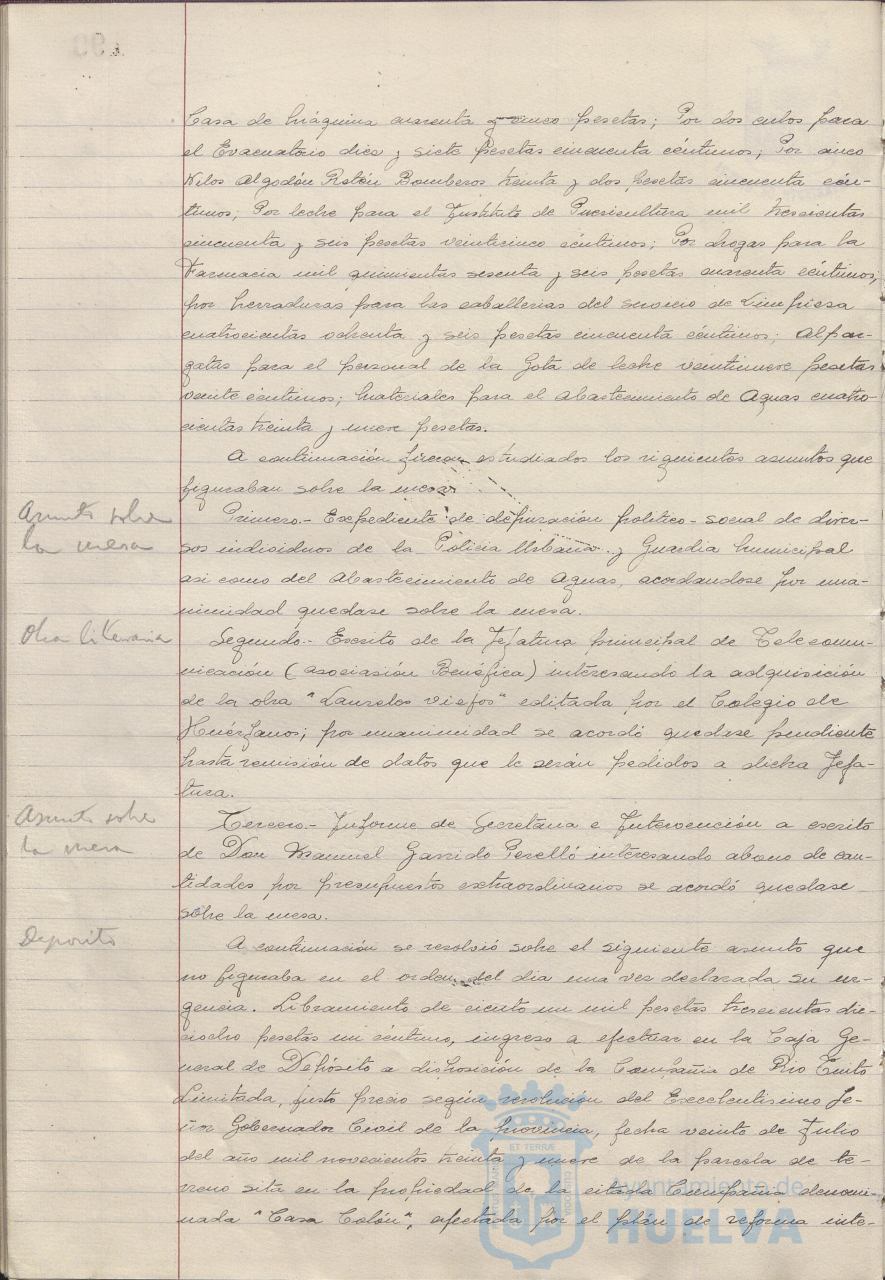 Casa de Máquina cuarenta y cinco pesetas; Por dos cubos para
el Evacuatorio diez y siete pesetas cincuenta céntimos; Por cinco
Kilos Algodón Bomberos treinta y dos pesetas cincuenta cén-
timos; Por leche para el Instituto de Puericultura mil trescientas
cincuenta y seis pesetas veinticinco céntimos; Por drogas para la
Farmacia mil quinientas sesenta y seis pesetas cuarenta céntimos;
por herraduras para las caballerias del servicio de Limpieza
cuatrocientas ochenta y seis pesetas cincuenta céntimos; Alpar-
gatas para el personal de la Gota de leche veintinueve pesetas
veinte céntimos; Materiales para el Abastecimiento de Aguas cuatro-
cientas treinta y nueve pesetas.
A continuación fueron estudiados los siguientes asuntos que
figuraban sobre la mesa.
Asunto sobre
la mesa
Primero.- Expediente de depuración politico-social de diver-
sos individuos de la Policia Urbana y Guardia Municipal
asi como del Abastecimiento de Aguas, acordandose por una-
nimidad quedase sobre la mesa.
Obra literaria
Segundo.- Escrito de la Jefatura principal de Telecomu-
nicación (asociasión Benéfica) interesando la adquisición
de la obra "Laureles viejos" editada por el Colegio de
Huérfanos; por unanimidad se acordó quedase pendiente
hasta remisión de datos que le serán pedidos a dicha Jefa-
tura.
Asunto sobre
la mesa
Tercero.- Informe de Secretaria e Intervención a escrito
de Don Manuel Garrido Perelló interesando abono de can-
tidades por presupuestos extraordinarios se acordó quedase
sobre la mesa.
Deposito
A continuación se resolvió sobre el siguiente asunto que
no figuraba en el orden del dia una vez declarada su ur-
gencia. Libramiento de ciento un mil pesetas trescientas die-
ciocho pesetas un céntimo, ingreso a efectuar en la Caja Ge-
neral de Depósito a disposición de la Compañia de Rio Tinto
Limitada, justo precio según resolución del Excelentisimo Se-
ñor Gobernador Civil de la provincia, fecha veinte de Julio
del año mil novecientos treinta y nueve de la parcela de te-
rreno sita en la propiedad de la citada Compañia denomi-
nada "Casa Colón", afectada por el plán de reforma inte-
ET TERRÆ
Ayuntamiento de
HUELVA